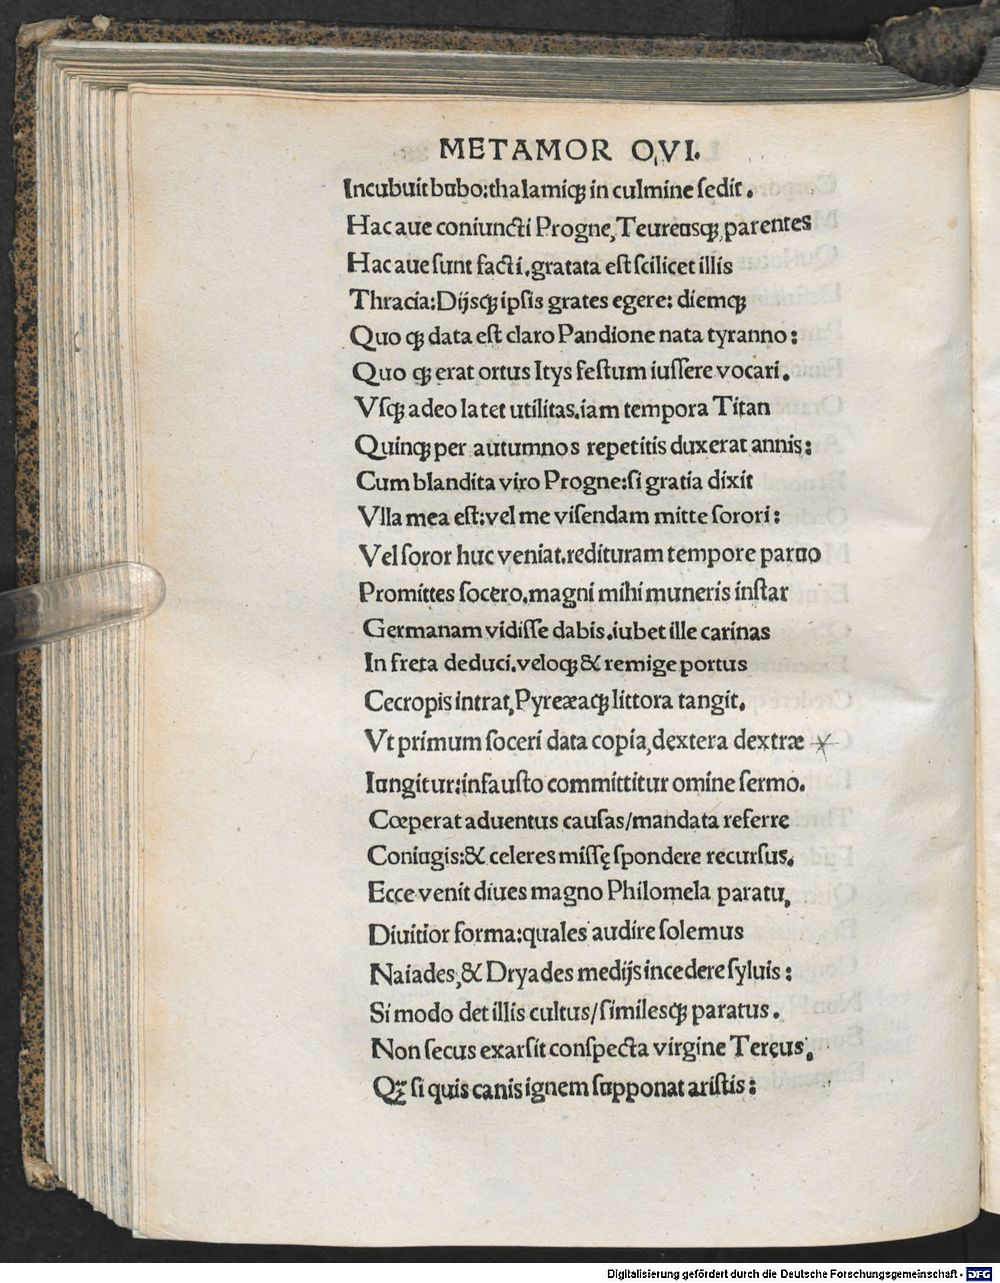 METAMOR OVI.
Incubuit bubo:thalamiqꝫ in culmine ſedit.
Hac aue coniuncti Progne,Teureusqꝫ parentes
Hac aue ſunt facti.gratata eſt ſcilicet illis
Thracia:Dijsqꝫ ipſis grates egere: diemqꝫ
Quo qꝫ data eſt claro Pandione nata tyranno:
Quo qꝫ erat ortus Itys feſtum iuſſere vocari.
Vſqꝫ adeo latet utilitas.iam tempora Titan
Quinqꝫ per autumnos repetitis duxerat annis:
Cum blandita viro Progne:ſi gratia dixit
Vlla mea eſt:vel me viſendam mitte ſorori:
Vel ſoror huc veniat.redituram tempore paruo
Promittes ſocero.magni mihi muneris inſtar
Germanam vidiſſe dabis.iubet ille carinas
In freta deduci.veloqꝫ & remige portus
Cecropis intrat,Pyreæaqꝫ littora tangit.
Vt primum ſoceri data copia,dextera dextræ
Iungitur:infauſto committitur omine ſermo.
Cœperat aduentus cauſas/mandata referre
Coniugis:& celeres miſſę ſpondere recurſus.
Ecce venit diues magno Philomela paratu,
Diuitior forma:quales audire ſolemus
Naiades,& Dryades medijs incedere ſyluis:
Si modo det illis cultus/ſimilesqꝫ paratus.
Non ſecus exarſit conſpecta virgine Tereus,
Qꝫ ſi quis canis ignem ſupponat ariſtis:
Digitalisierung gefördert durch die Deutsche Forschungsgemeinschaft - DFG